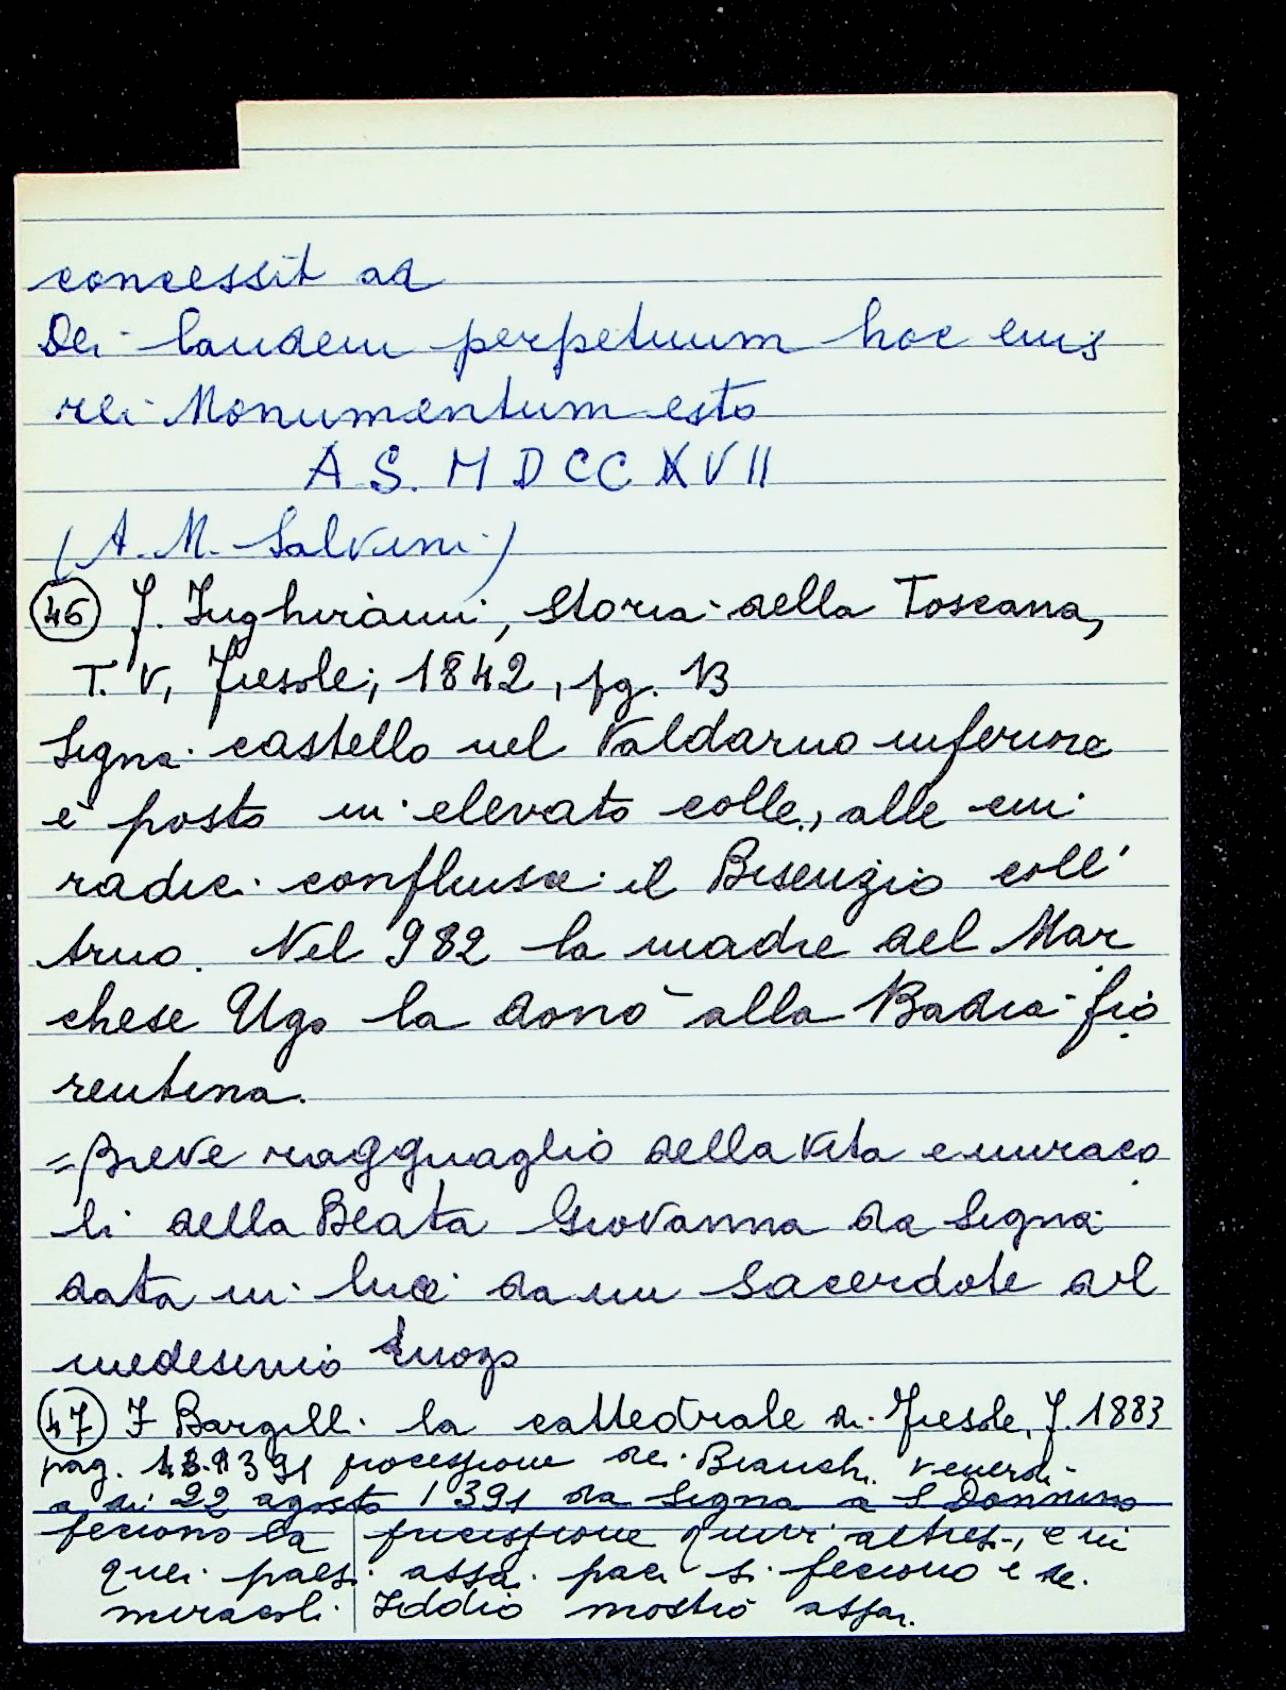 concessit ad
Dei laudem perpetuum hoc eius
rei Monumentum esto
A S. M D CC XVII
(A. M. Salvini)
46 F. Inghirami, Storia della Toscana,
T. V, Fiesole, 1842, pg. 13
Signa castello nel Valdarno inferiore
è posto in elevato colle, alle cui
radici confluisce il Bisenzio coll'
Arno. Nel 982 la madre del Mar
chese Ugo la donò alla Badia fio
rentina.
= Breve ragguaglio della vita e miraco
li della Beata Giovanna da Signa
data in luce da un Sacerdote del
medesimo luogo
47 F Bargilli la cattedrale di Fiesole, F. 1883
pag. 1391 processione dei Bianchi venerdi
a di 22 agosto 1391 da Signa a S Donnino
feciono la processione quivi altresi, e in
quei paesi assai paci si feciono e de
miracoli Iddio mostrò assai.